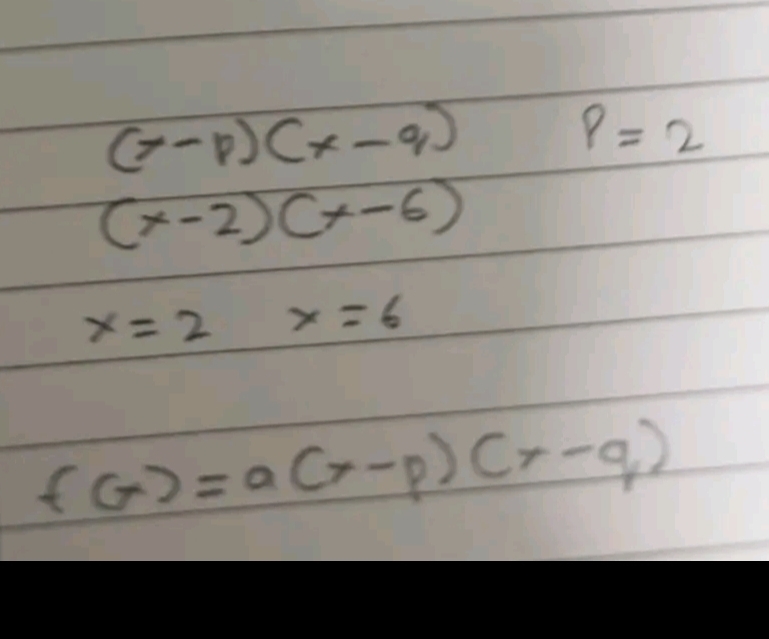 (x-p)(x-q) P=2
(x-2)(x-6)
x=2 x=6
f(x)=a(x-p)(x-q)